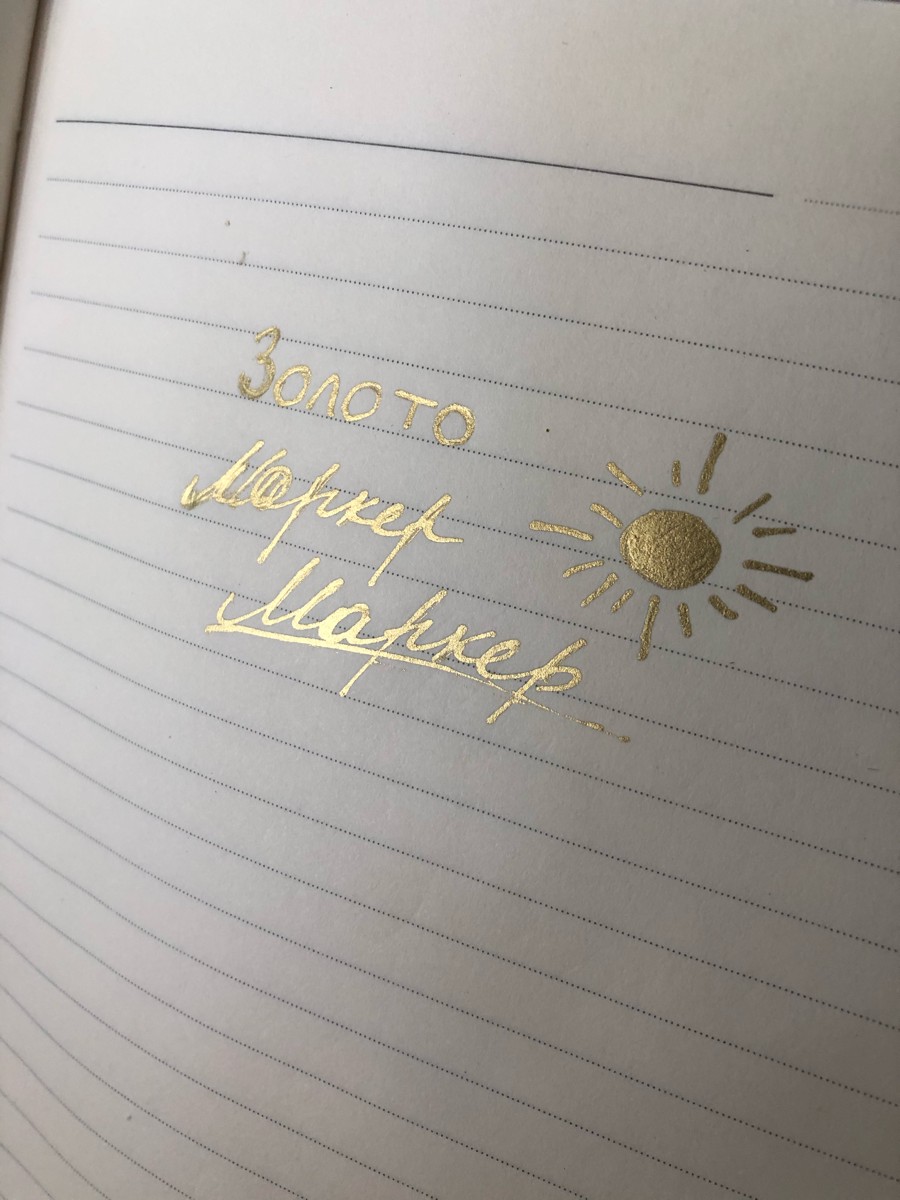 Золото
Маркер
Маркер